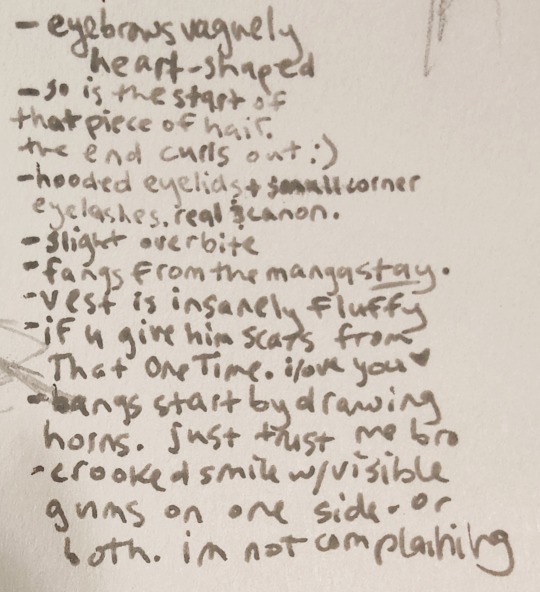 - eyebrows vaguely
heart-shaped
- so is the start of
that piece of hair.
the end curls out :)
- hooded eyelids + small corner
eyelashes. real & canon.
- slight overbite
- fangs from the manga stay.
- vest is insanely fluffy
- if u give him scars from
That One Time. i love you ♥
- bangs start by drawing
horns. just trust me bro
- crooked smile w/visible
gums on one side. or
both. im not complaining